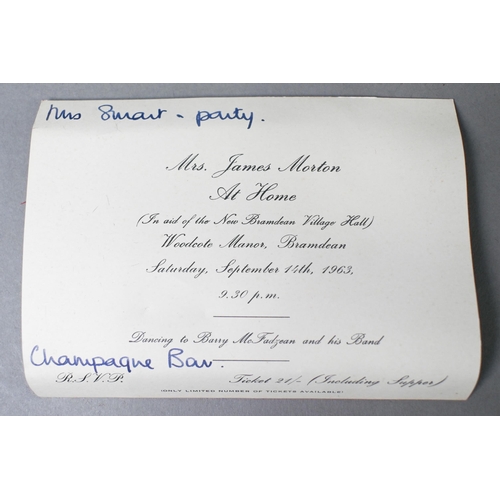 Mrs Smart - party.
Mrs. James Morton
At Home
(In aid of the New Bramdean Village Hall)
Woodcote Manor, Bramdean
Saturday, September 14th, 1963,
9.30 p.m.
Dancing to Barry McFadzean and his Band
Champagne Bar.
R.S.V.P. Ticket 21/- (Including Supper)
(ONLY LIMITED NUMBER OF TICKETS AVAILABLE)